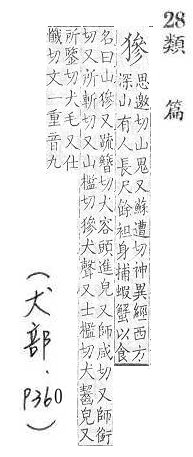 28
類篇
㺑
思邀切山鬼又蘇遭切神異經西方
深山有人長尺餘袒身捕蝦蟹以食
名曰山㺑又疏簪切犬容頭進皃又師咸切又師銜
切又所斬切又山檻切㺑犬聲又士檻切犬齧皃又
所鑒切犬毛又仕
懺切文一重音九
(犬部．P360)